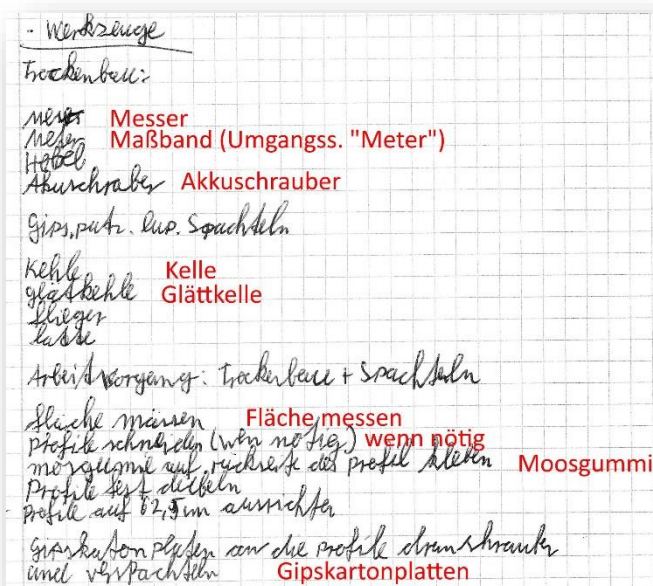 - Werkzeuge
Trockenbau:
Messer
Meter Maßband (Umgangss. "Meter")
Hobel
Akuschraber Akkuschrauber
Gips.putz. Spachteln
Kehle Kelle
glätkehle Glättkelle
flieger
latte
Arbeitvorgang: Trockenbau + Spachteln
fläche mässen Fläche messen
Profile schneiden (wen nötig) wenn nötig
morgumie auf rückseite des profil kleben Moosgummi
Profile fest dübeln
Profile auf 62,5 m ausrichten
gipskatonplaten an die profile dranschrauben
und verspachteln Gipskartonplatten